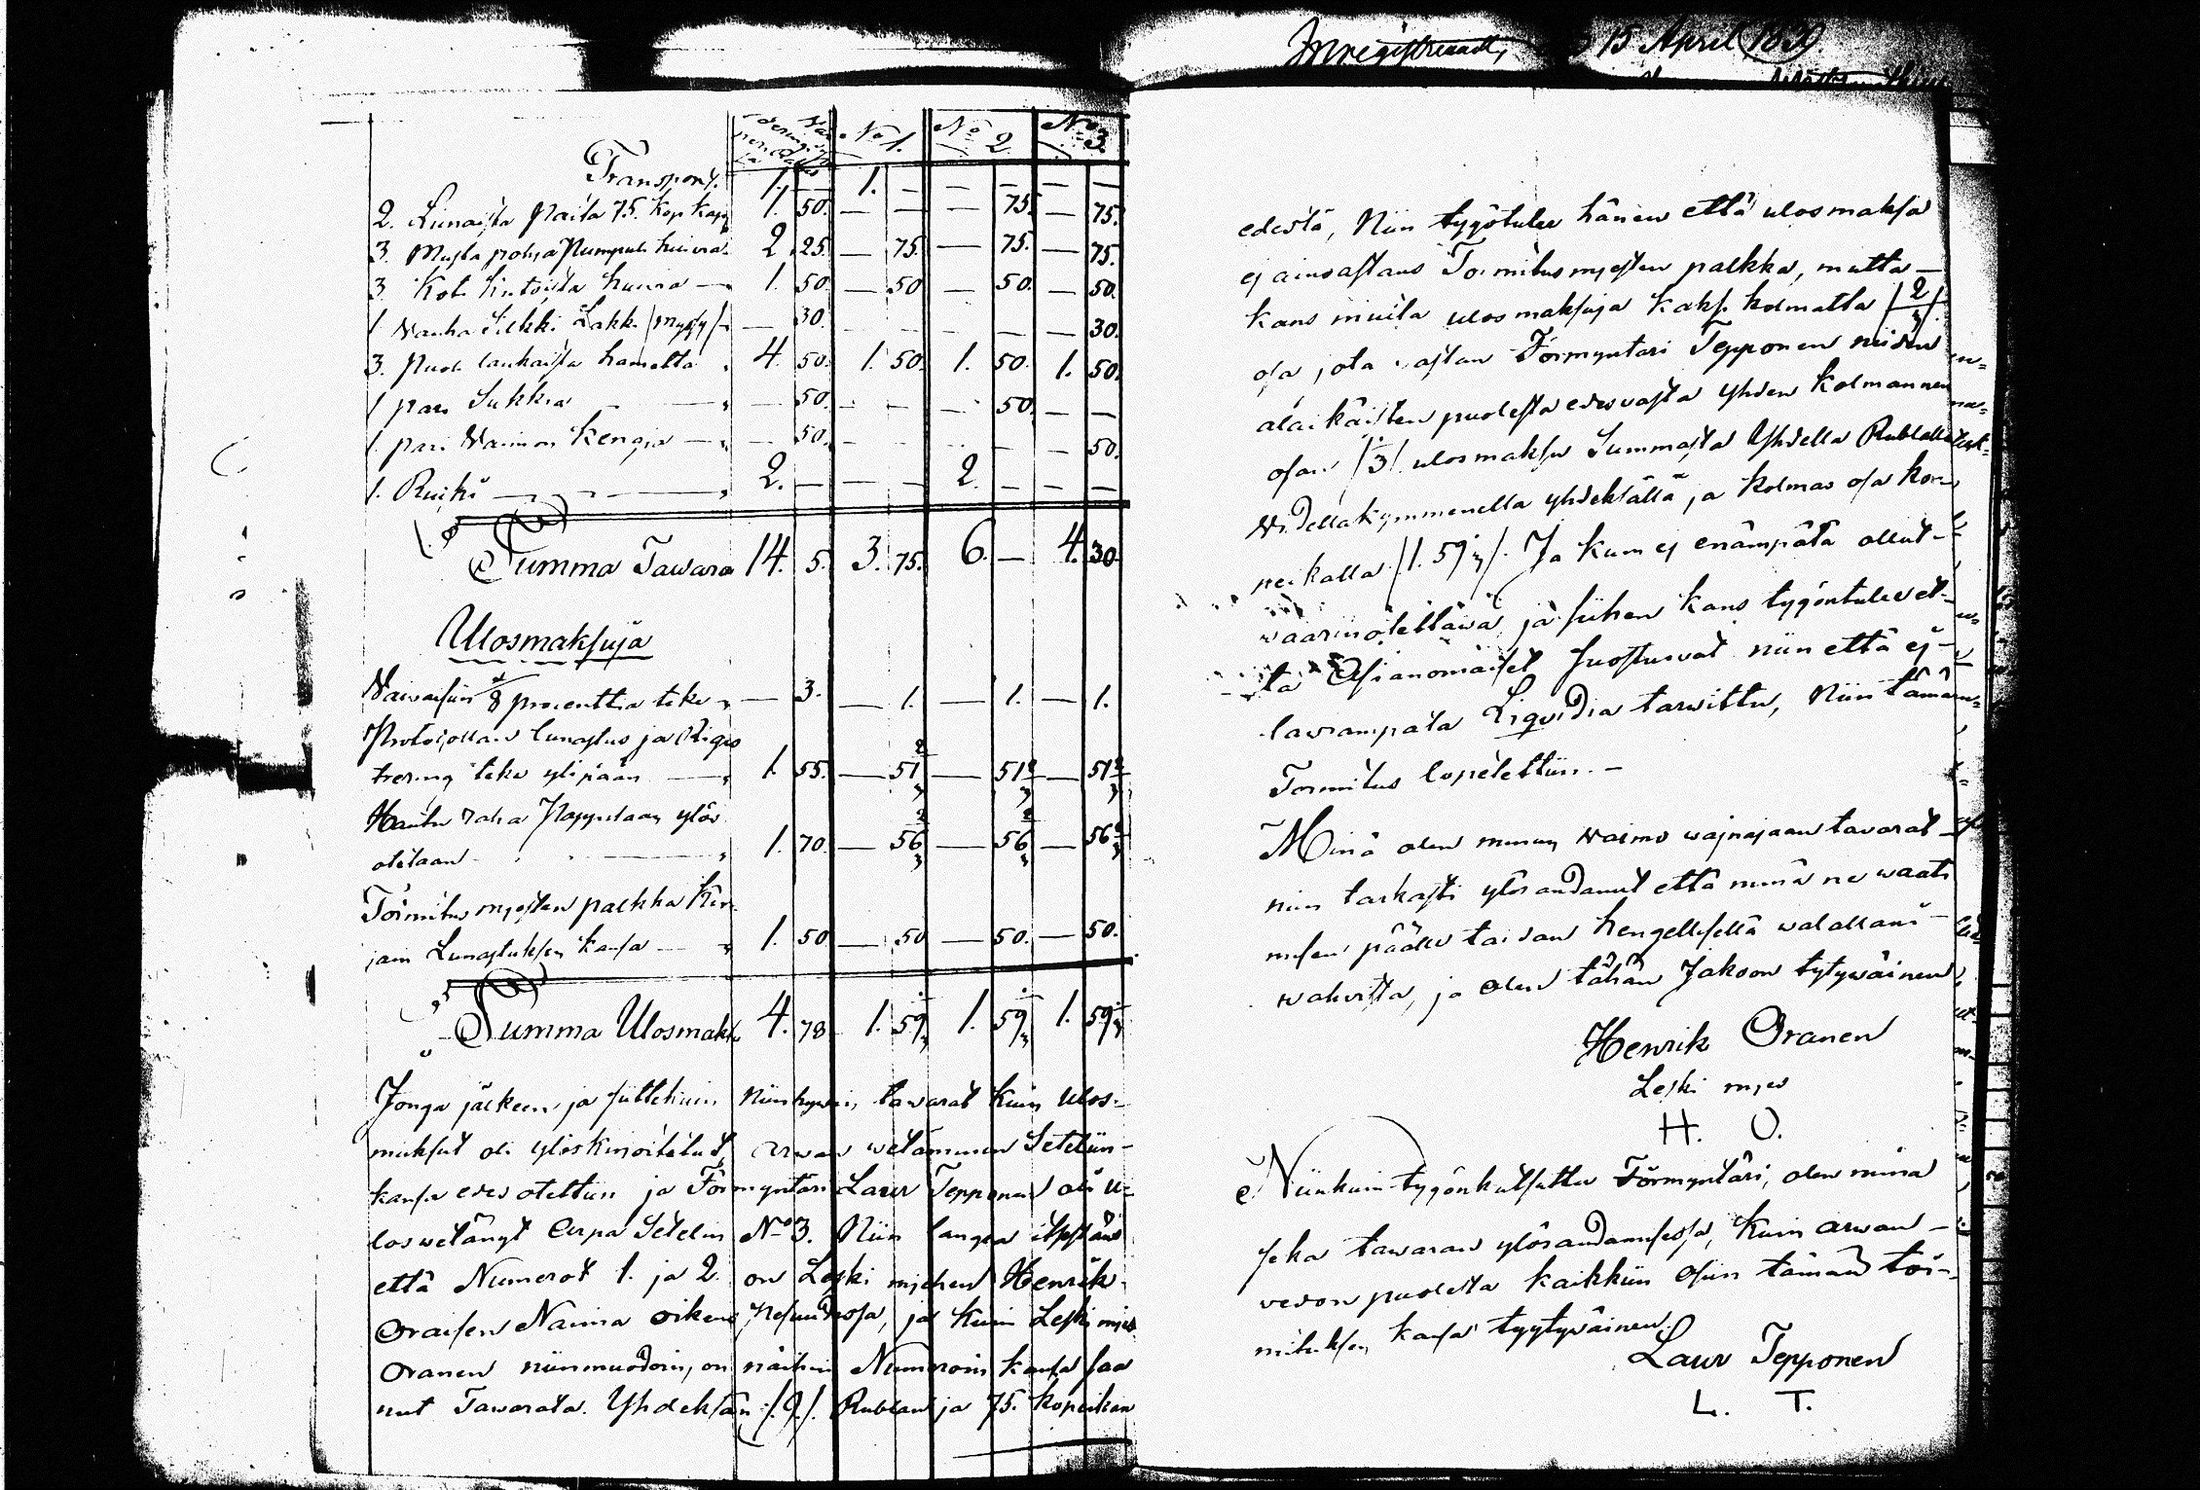 Inregistreradt, 15 April 1839.
No 1. No 2. No 3.
Transport. 1. — 1. — — — — —
2. Liinaista Paita 75. kop kap. 1. 50. — — — 75. — 75.
3. Musta pohja Pumpuli huivia 2. 25. — 75. — 75. — 75.
3. Koti kutoista huivia — 1. 50. — 50 — 50. — 50.
1 Wanha Silkki Lakk /myssy/ — 30. — — — — — 30.
3. Puoli laukaista hametta 4. 50. 1. 50. 1. 50. 1. 50.
1 pari Sukkia — 50. — — — 50. — —
1. pari Waimon Kengiä — 50. — — — — — 50.
1. Ruiki — 2. — — — 2. — — —
Summa Tawara 14. 5. 3. 75. 6. — 4. 30.
Ulosmaksuja
Waiwasiin 1/8 prosenttia teke — 3. — 1. — 1. — 1.
Protocollan lunastus ja Regis
trering teke ylipään — 1. 55. — 51 2/3 — 51 2/3 — 51 2/3
Hauta raha Pappilaan ylös
otetaan — 1. 70. — 56 2/3 — 56 2/3 — 56 2/3
Toimitus miesten palkka Kir-
jain Lunastuksen kansa — 1. 50 — 50 — 50. — 50.
Summa Ulosmaks 4. 78 1. 59 1/3 1. 59 1/3 1. 59 1/3
Jonga jälkeen, ja sittekuin Niinhywin tawarat kuin Ulos-
maksut oli yliskirjoitetut, arwan wetäminen Seteliin-
kansa edes otettiin ja Förmyntäri Laur Tepponen oli u-
loswetänyt Arpa Setelin No 3. Niin langea itsestäns
että Numerot 1. ja 2. on Leski miehen Henrik
Oraisen Naima oikeus Pesuudessa, ja kuin Leski mies
Oranen niinmuodoin, on näihin Numeroin kansa saa
nut Tawarata. Yhdeksän /:9:/ Rublan ja 75. kopeikan
edestä, Niin tygötulee hänen että ulosmaksa
ej ainoastans Toimitusmiesten palkka, mutta —
kans muita ulosmaksuja kaksi kolmatta /2/3/
osa, jota vastan Förmyntäri Tepponen neiden
alaikäisten puolesta edesvasta yhden kolmannen
osan /1/3/ ulosmaksu Summasta Yhdella Rublalla
Wiidellakymmenella yhdeksällä ja kolmas osa ko-
peikalla /1. 59 1/3/. Ja kuin ej enämpätä ollut-
waarinotettawa, ja siihen kans tygöntulevet-
ta Asianomaiset suostuivat niin että ej-
lawiampata Liqvidia tarwittu, Niin tämän
Toimitus lopetettiin. —
Minä olen minun waimo wainajaan tavarat —
niin tarkasti ylösandanut että minä ne waati
misen päälle taidan hengellisellä walallani —
wahvista, ja olen tähän Jakoon tytywäinen
Henrik Oranen
Leski mies
H. O.
Niinkuin tygönkutsuttu Förmyntäri, olen minä
seka tawaran ylösandamisessa, kuin arwan —
vedon puolesta kaikkiin osiin tämän toi-
mituksen kansa tyytywäinen.
Laur Tepponen
L. T.